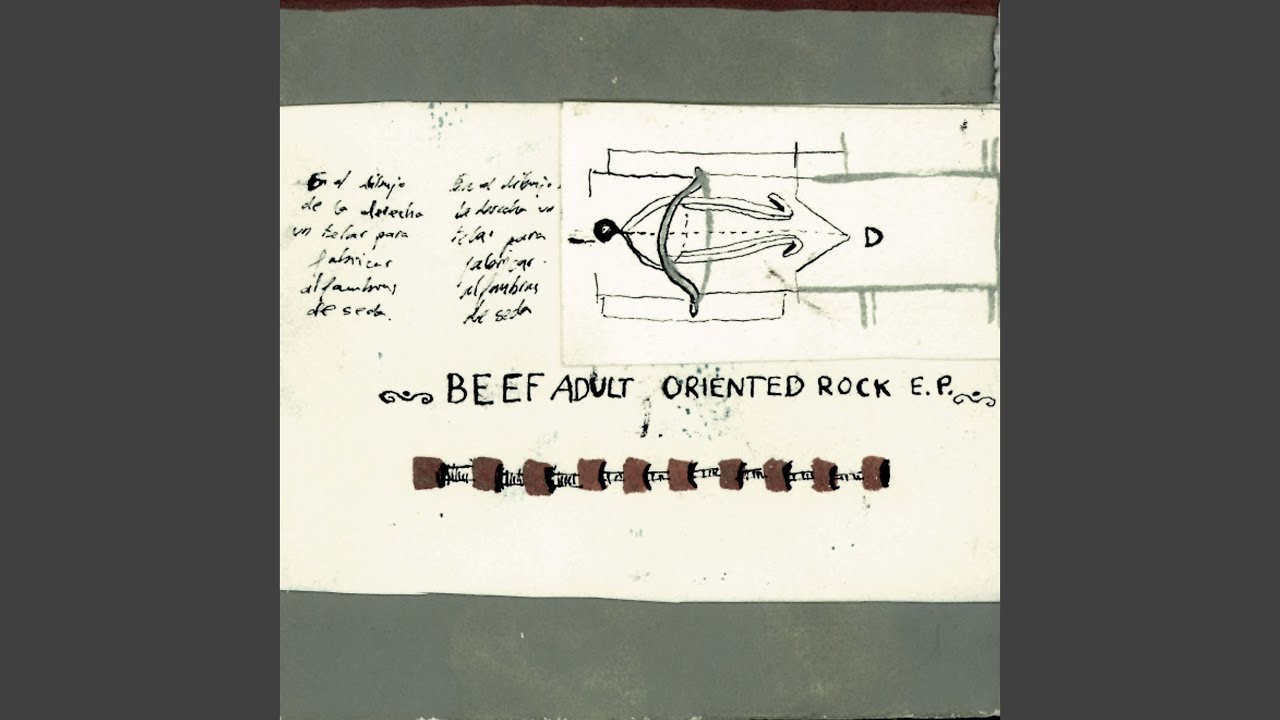 En el dibujo
de la derecha
un telar para
fabricar
alfambras
de seda.
En el dibujo
la derecha un
telar para
fabricar
alfambras
de seda
D
BEEF ADULT ORIENTED ROCK E.P.